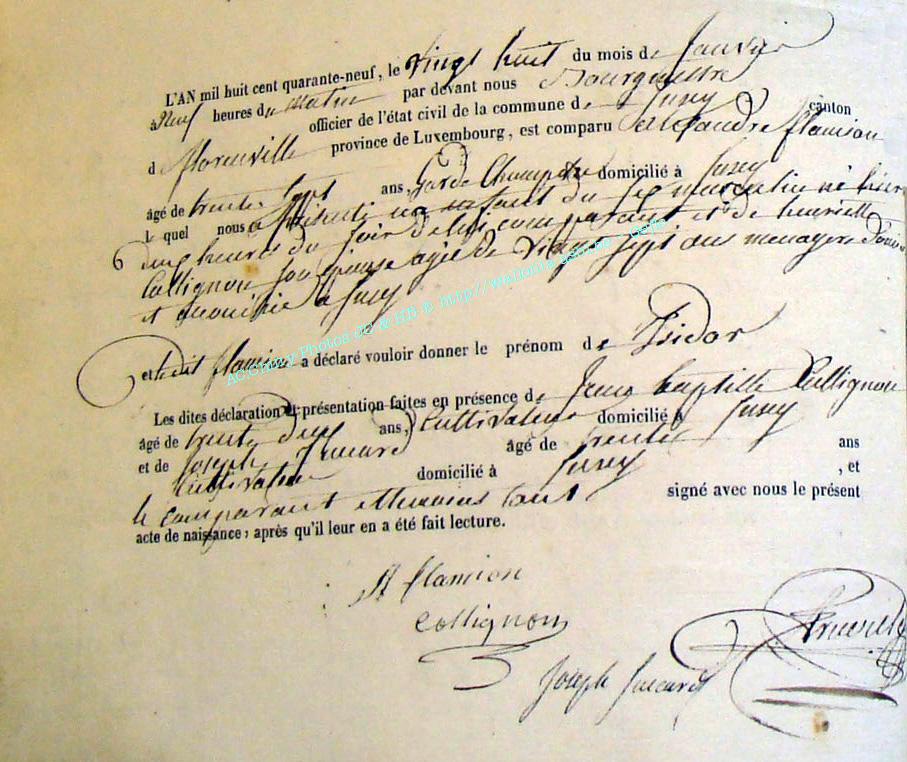 L'AN mil huit cent quarante-neuf, le vingt huit du mois de Janvier
à Neuf heures du matin par devant nous Bourguestre
officier de l'état civil de la commune de Jusey canton
d Florenville province de Luxembourg, est comparu Alexandre flamion
âgé de trente Sept ans, Garde Champetre domicilié à Jusey
l quel nous a présenté un enfant du sexe masculin né hier
à heures du soir de lui comparant et de henriette
Collignon Son épouse agée de vingt Sept ans menagere
et domiciliée à Jusey
et le dit flamion a déclaré vouloir donner le prénom de Isidor
Les dites déclaration et présentation faites en présence de Jean baptiste Collignon
âgé de trente deux ans, Cultivateur domicilié à Jusey
et de Joseph âgé de trente ans
Cultivateur domicilié à Jusey , et
le comparant et témoins sont signé avec nous le présent
acte de naissance, après qu'il leur en a été fait lecture.
A flamion
Collignon
Joseph
AC.Chiny Photos JD & HB © http://wallonia-asbl